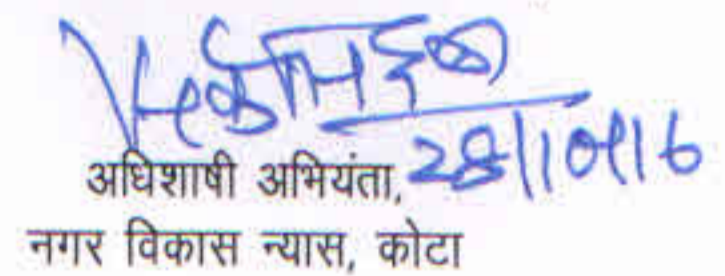 28/10/16
अधिशाषी अभियंता,
नगर विकास न्यास, कोटा